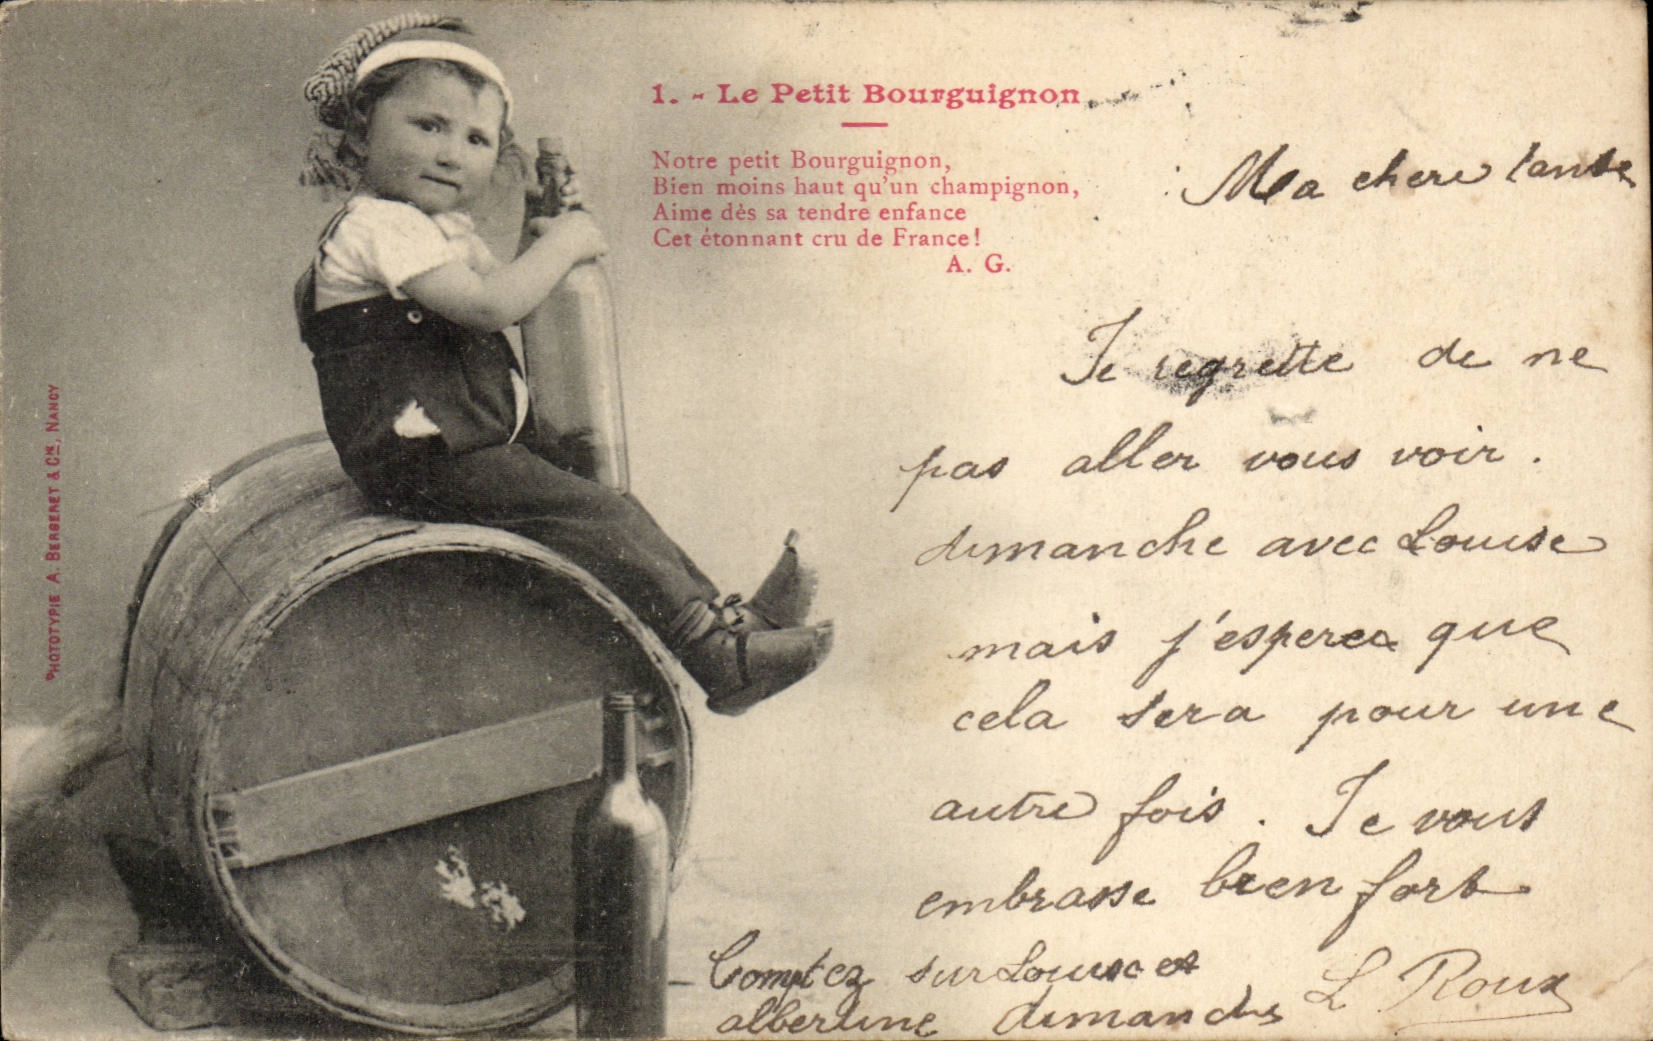 1. - Le Petit Bourguignon
Notre petit Bourguignon,
Bien moins haut qu'un champignon,
Aime dès sa tendre enfance
Cet étonnant cru de France!
A. G.
PHOTOTYPIE A. BERGERET & Cie, NANCY
Ma chere tante
Je regrette de ne
pas aller vous voir.
dimanche avec Louise
mais j'espere que
cela sera pour une
autre fois. Je vous
embrasse bien fort
L Roux
Comptez sur Louise et
albertine dimanche